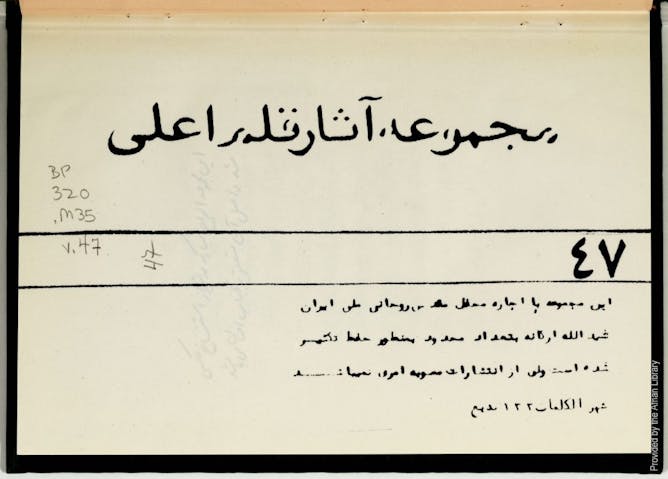 مجموعه آثار قلم اعلی
BP
320
.M35
v.47
47
٤٧
این مجموعه با اجازه محفل مقدس روحانی ملی ایران
شید الله ارکانه بتعداد محدود بمنظور حفظ تکثیر
شده است ولی از انتشارات مصوبه امری نمیباشد
شهر الکلمات ١٢٢ بدیع
Provided by the Afnan Library